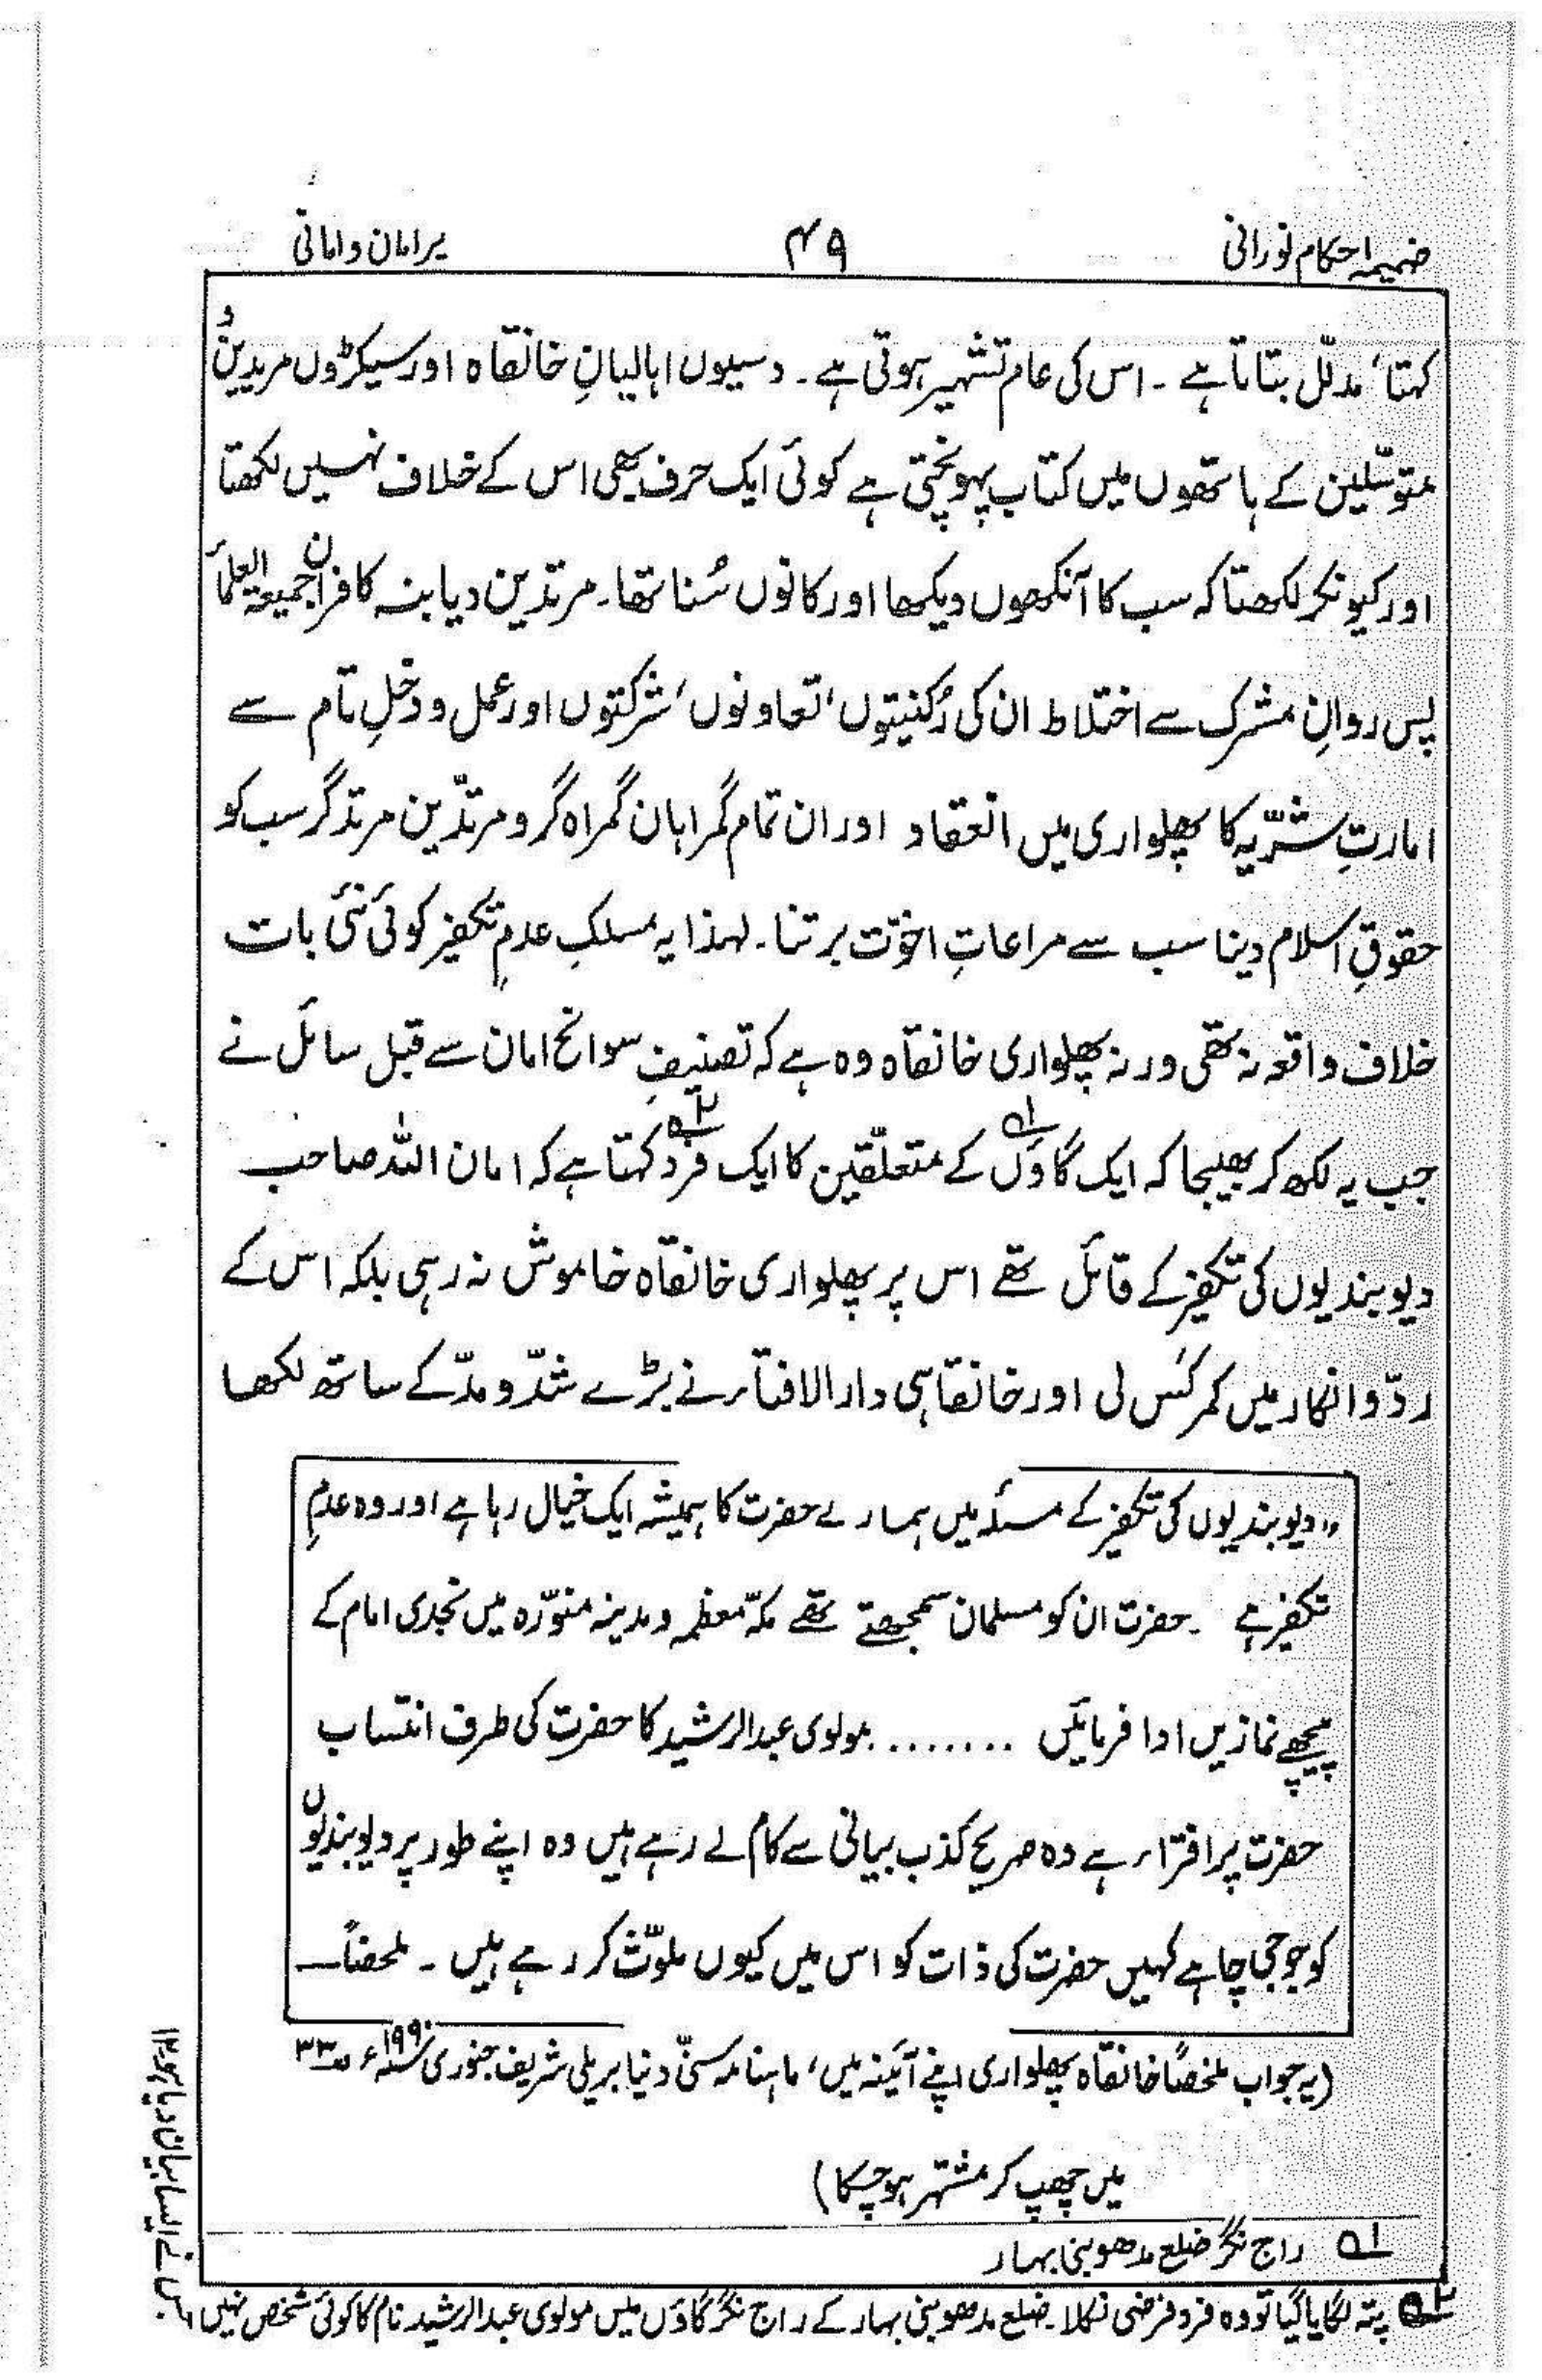 ضمیمہ احکام نورانی
۴۹
برامان وامانی
کہتا، مدلّل بتاتا ہے ۔ اس کی عام تشہیر ہوتی ہے ۔ دسیوں اہالیانِ خانقاہ اور سیکڑوں مریدین و
متوسّلین کے ہاتھوں میں کتاب پہونچتی ہے کوئی ایک حرف بھی اس کے خلاف نہیں لکھتا
اور کیونکر لکھتا کہ سب کا آنکھوں دیکھا اور کانوں سُنا تھا۔ مرتدین دیابنہ کافران جمیعۃ العلماء
پس روانِ مشرک سے اختلاط ان کی رُکنیتوں، تعاونوں، شرکتوں اور عمل و دخلِ تام سے
امارتِ شرّیہ کا پھلواری میں انعقاد اور ان تمام گمراہان گمراہ گر و مرتدّین مرتد گر سب کو
حقوقِ اسلام دینا سب سے مراعاتِ اخوّت برتنا۔ لہذا یہ مسلکِ عدمِ تکفیر کوئی نئی بات
خلاف واقعہ نہ تھی ورنہ پھلواری خانقاہ وہ ہے کہ تصنیفِ سوانح امان سے قبل سائل نے
جب یہ لکھ کر بھیجا کہ ایک گاؤں۱؎ کے متعلّقین کا ایک فرد۲؎ کہتا ہے کہ امان اللہ صاحب
دیوبندیوں کی تکفیر کے قائل تھے اس پر پھلواری خانقاہ خاموش نہ رہی بلکہ اس کے
ردّ و انکار میں کمر کس لی اور خانقاہی دارالافتاء نے بڑے شدّ و مدّ کے ساتھ لکھا
”دیوبندیوں کی تکفیر کے مسئلہ میں ہمارے حضرت کا ہمیشہ ایک خیال رہا ہے اور وہ عدمِ
تکفیر ہے ۔ حضرت ان کو مسلمان سمجھتے تھے مکّہ معظمہ و مدینہ منوّرہ میں نجدی امام کے
پیچھے نمازیں ادا فرمائیں ........ مولوی عبدالرشید کا حضرت کی طرف انتساب
حضرت پر افتراء ہے وہ صریح کذب بیانی سے کام لے رہے ہیں وہ اپنے طور پر دیوبندیوں
کو جو جی چاہے کہیں حضرت کی ذات کو اس میں کیوں ملوّث کر رہے ہیں ۔ ملخصاً
(یہ جواب ملخصاً خانقاہ پھلواری اپنے آئینہ میں، ماہنامہ سنّی دنیا بریلی شریف جنوری ۱۹۹۰؁ء ص۳۳
میں چھپ کر مشتہر ہو چکا)
۱؎ راج نگر ضلع مدھوبنی بہار
۲؎ پتہ لگایا گیا تو وہ فرد فرضی نکلا۔ ضلع مدھوبنی بہار کے راج نگر گاؤں میں مولوی عبدالرشید نام کا کوئی شخص نہیں
جس نے ایسا بیان دیا ہو ۱۲